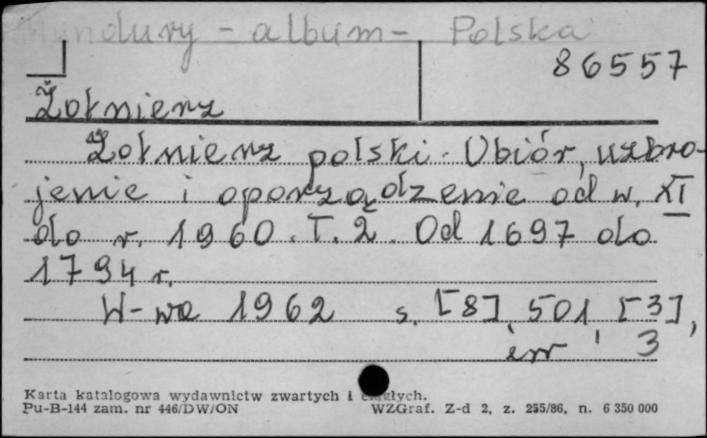 Mundury - album - Polska
86557
Żołnierz
Żołnierz polski. Ubiór, uzbro-
jenie i oporządzenie od w. XI
do r. 1960. T. 2. Od 1697 do
1794 r.
W-wa 1962 s. [8], 501, [3],
err 3
Karta katalogowa wydawnictw zwartych i ciągłych.
Pu-B-144 zam. nr 446/DW/ON WZGraf. Z-d 2, z. 255/86, n. 6 350 000